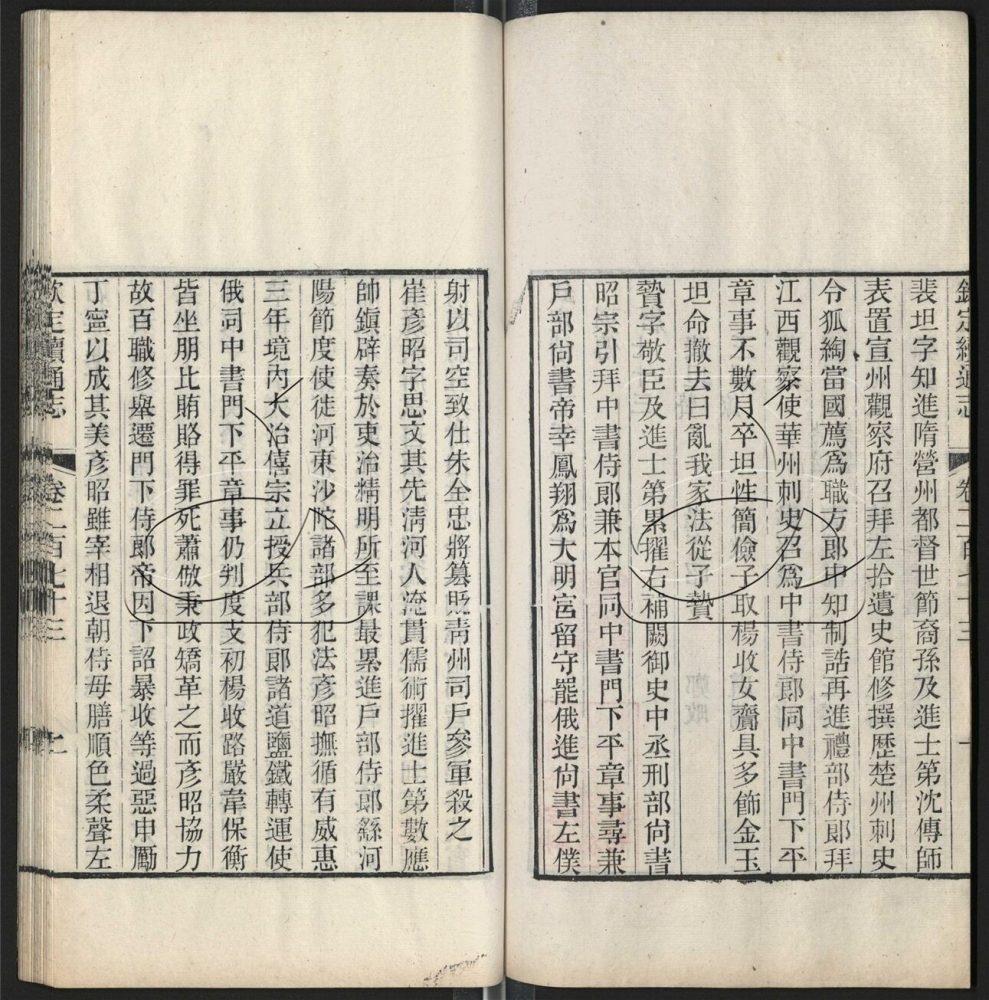 欽定續通志 卷二百七十三
裴坦字知進隋營州都督世節裔孫及進士第沈傳師
表置宣州觀察府召拜左拾遺史館修撰歷楚州刺史
令狐綯當國薦為職方郎中知制誥再進禮部侍郎拜
江西觀察使華州刺史召為中書侍郎同中書門下平
章事不數月卒坦性簡儉子取楊收女齎具多飾金玉
坦命撤去曰亂我家法從子贄
贄字敬臣及進士第累擢右補闕御史中丞刑部尚書
昭宗引拜中書侍郎兼本官同中書門下平章事尋兼
戶部尚書帝幸鳳翔為大明宮留守罷俄進尚書左僕
射以司空致仕朱全忠將篡貶青州司戶參軍殺之
崔彥昭字思文其先淸河人淹貫儒術擢進士第數應
帥鎮辟奏於吏治精明所至課最累進戶部侍郎繇河
陽節度使徙河東沙陀諸部多犯法彥昭撫循有威惠
三年境內大治僖宗立授兵部侍郎諸道鹽鐵轉運使
俄同中書門下平章事仍判度支初楊收路嚴韋保衡
皆坐朋比賄賂得罪死蕭倣秉政矯革之而彥昭協力
故百職修舉遷門下侍郎帝因下詔暴收等過惡申勵
丁寧以成其美彥昭雖宰相退朝侍母膳順色柔聲左
欽定續通志 卷二百七十三